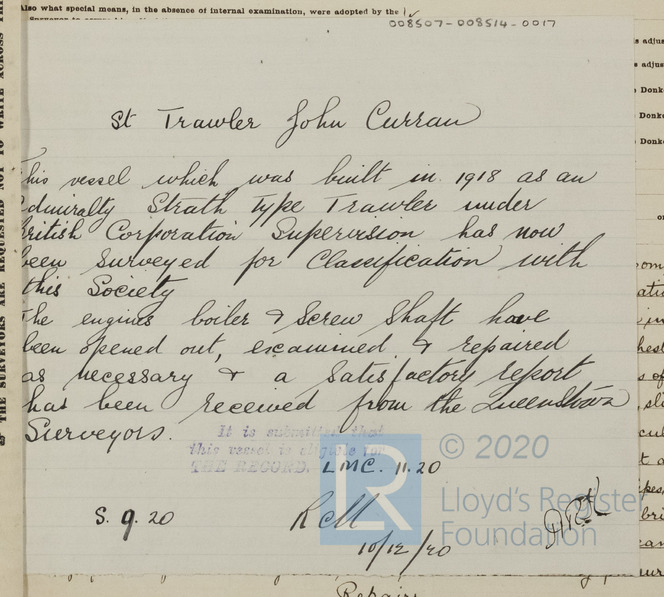 Also what special means, in the absence of internal examination, were adopted by the
008507-008514-0017
St Trawler John Curran
This vessel which was built in 1918 as an
Admiralty Strath type Trawler under
British Corporation Supervision has now
been surveyed for Classification with
this Society
The engines boiler & Screw Shaft have
been opened out, examined & repaired
as necessary & a satisfactory report
has been received from the Queenstown
Surveyors.
It is submitted that
this vessel is eligible for
THE RECORD. LMC. 11.20
S. 9. 20
10/12/20
LR
© 2020
Lloyd's Register
Foundation
& THE SURVEYORS ARE REQUESTED NOT TO WRITE ACROSS
Repairs